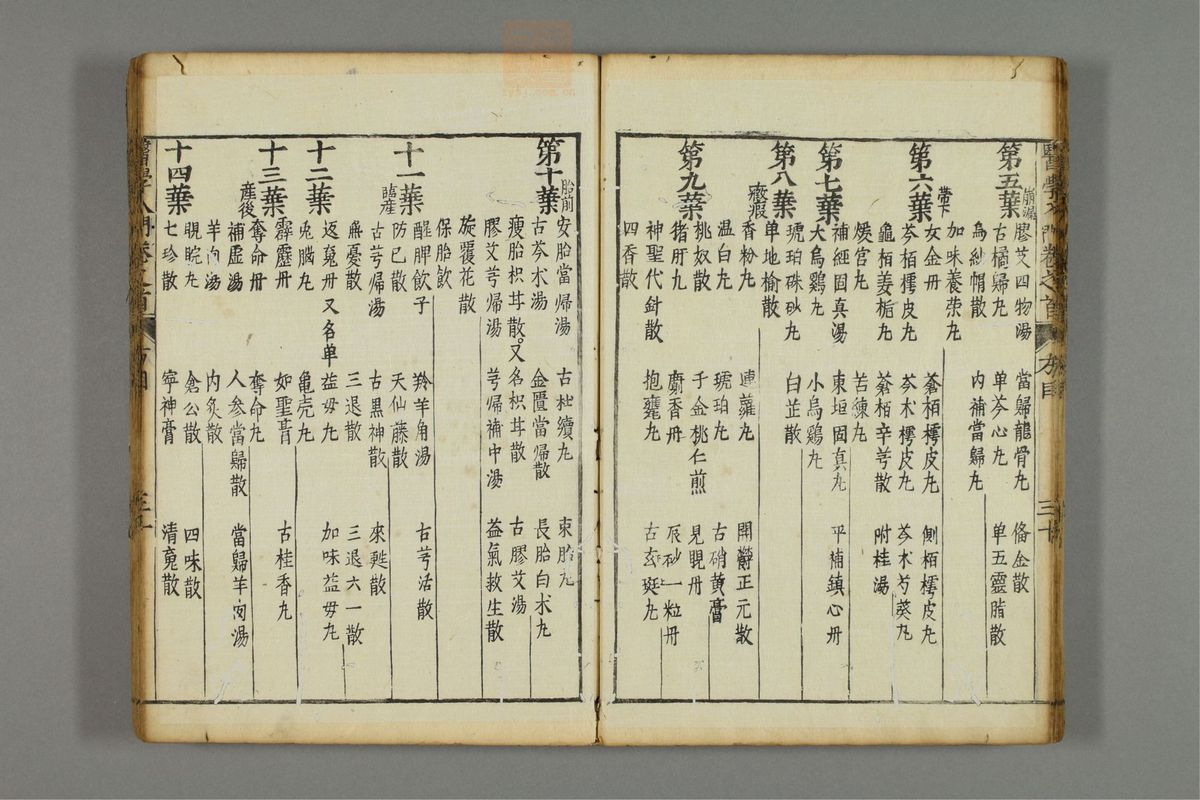 醫學入門卷之首
方目
三十
第五葉
崩漏
膠艾四物湯 當歸龍骨丸 俻金散
古橘歸丸 單芩心丸 單五靈脂散
烏紗帽散 內補當歸丸
第六葉
帶下
加味養荣丸
女金丹 蒼栢樗皮丸 側栢樗皮丸
芩栢樗皮丸 芩术樗皮丸 芩术芍葵丸
龜栢姜栀丸 蒼栢辛芎散 附桂湯
煖宫丸 苦練丸
第七葉
補經固真湯 東垣固真丸 平補鎮心丹
大烏鷄丸 小烏鷄丸
琥珀硃砂丸 白芷散
第八葉
單地榆散
癥瘕
香粉丸 連蘿丸 開鬱正元散
温白丸 琥珀丸 古硝黄膏
桃奴散 千金桃仁煎 見睍丹
第九葉
猪肝丸 麝香丹 辰砂一粒丹
神聖代針散 抱甕丸 古玄斑丸
四香散
第十葉
胎前
安胎當歸湯 古杜續丸 束胎丸
古芩术湯 金匱當歸散 長胎白术丸
瘦胎枳甘散又名枳甘散 古膠艾湯
膠艾芎歸湯 芎歸補中湯 益氣救生散
旋覆花散
保胎飲
十一葉
醒脾飲子 羚羊角湯 古芎活散
臨産
防己散 天仙藤散
古芎歸湯 古黒神散 來甦散
無憂散 三退散 三退六一散
十二葉
返䰟丹又名单益母丸 加味益母丸
兎腦丸 龟壳丸
霹靂丹 如聖膏 古桂香丸
十三葉
奪命丹 奪命丸
産後
補虚湯 人参當歸散 當歸羊肉湯
羊肉湯 内灸散
睍睆丸 倉公散 四味散
十四葉
七珍散 寧神膏 清䰟散
醫學入門卷之首
方目
三十